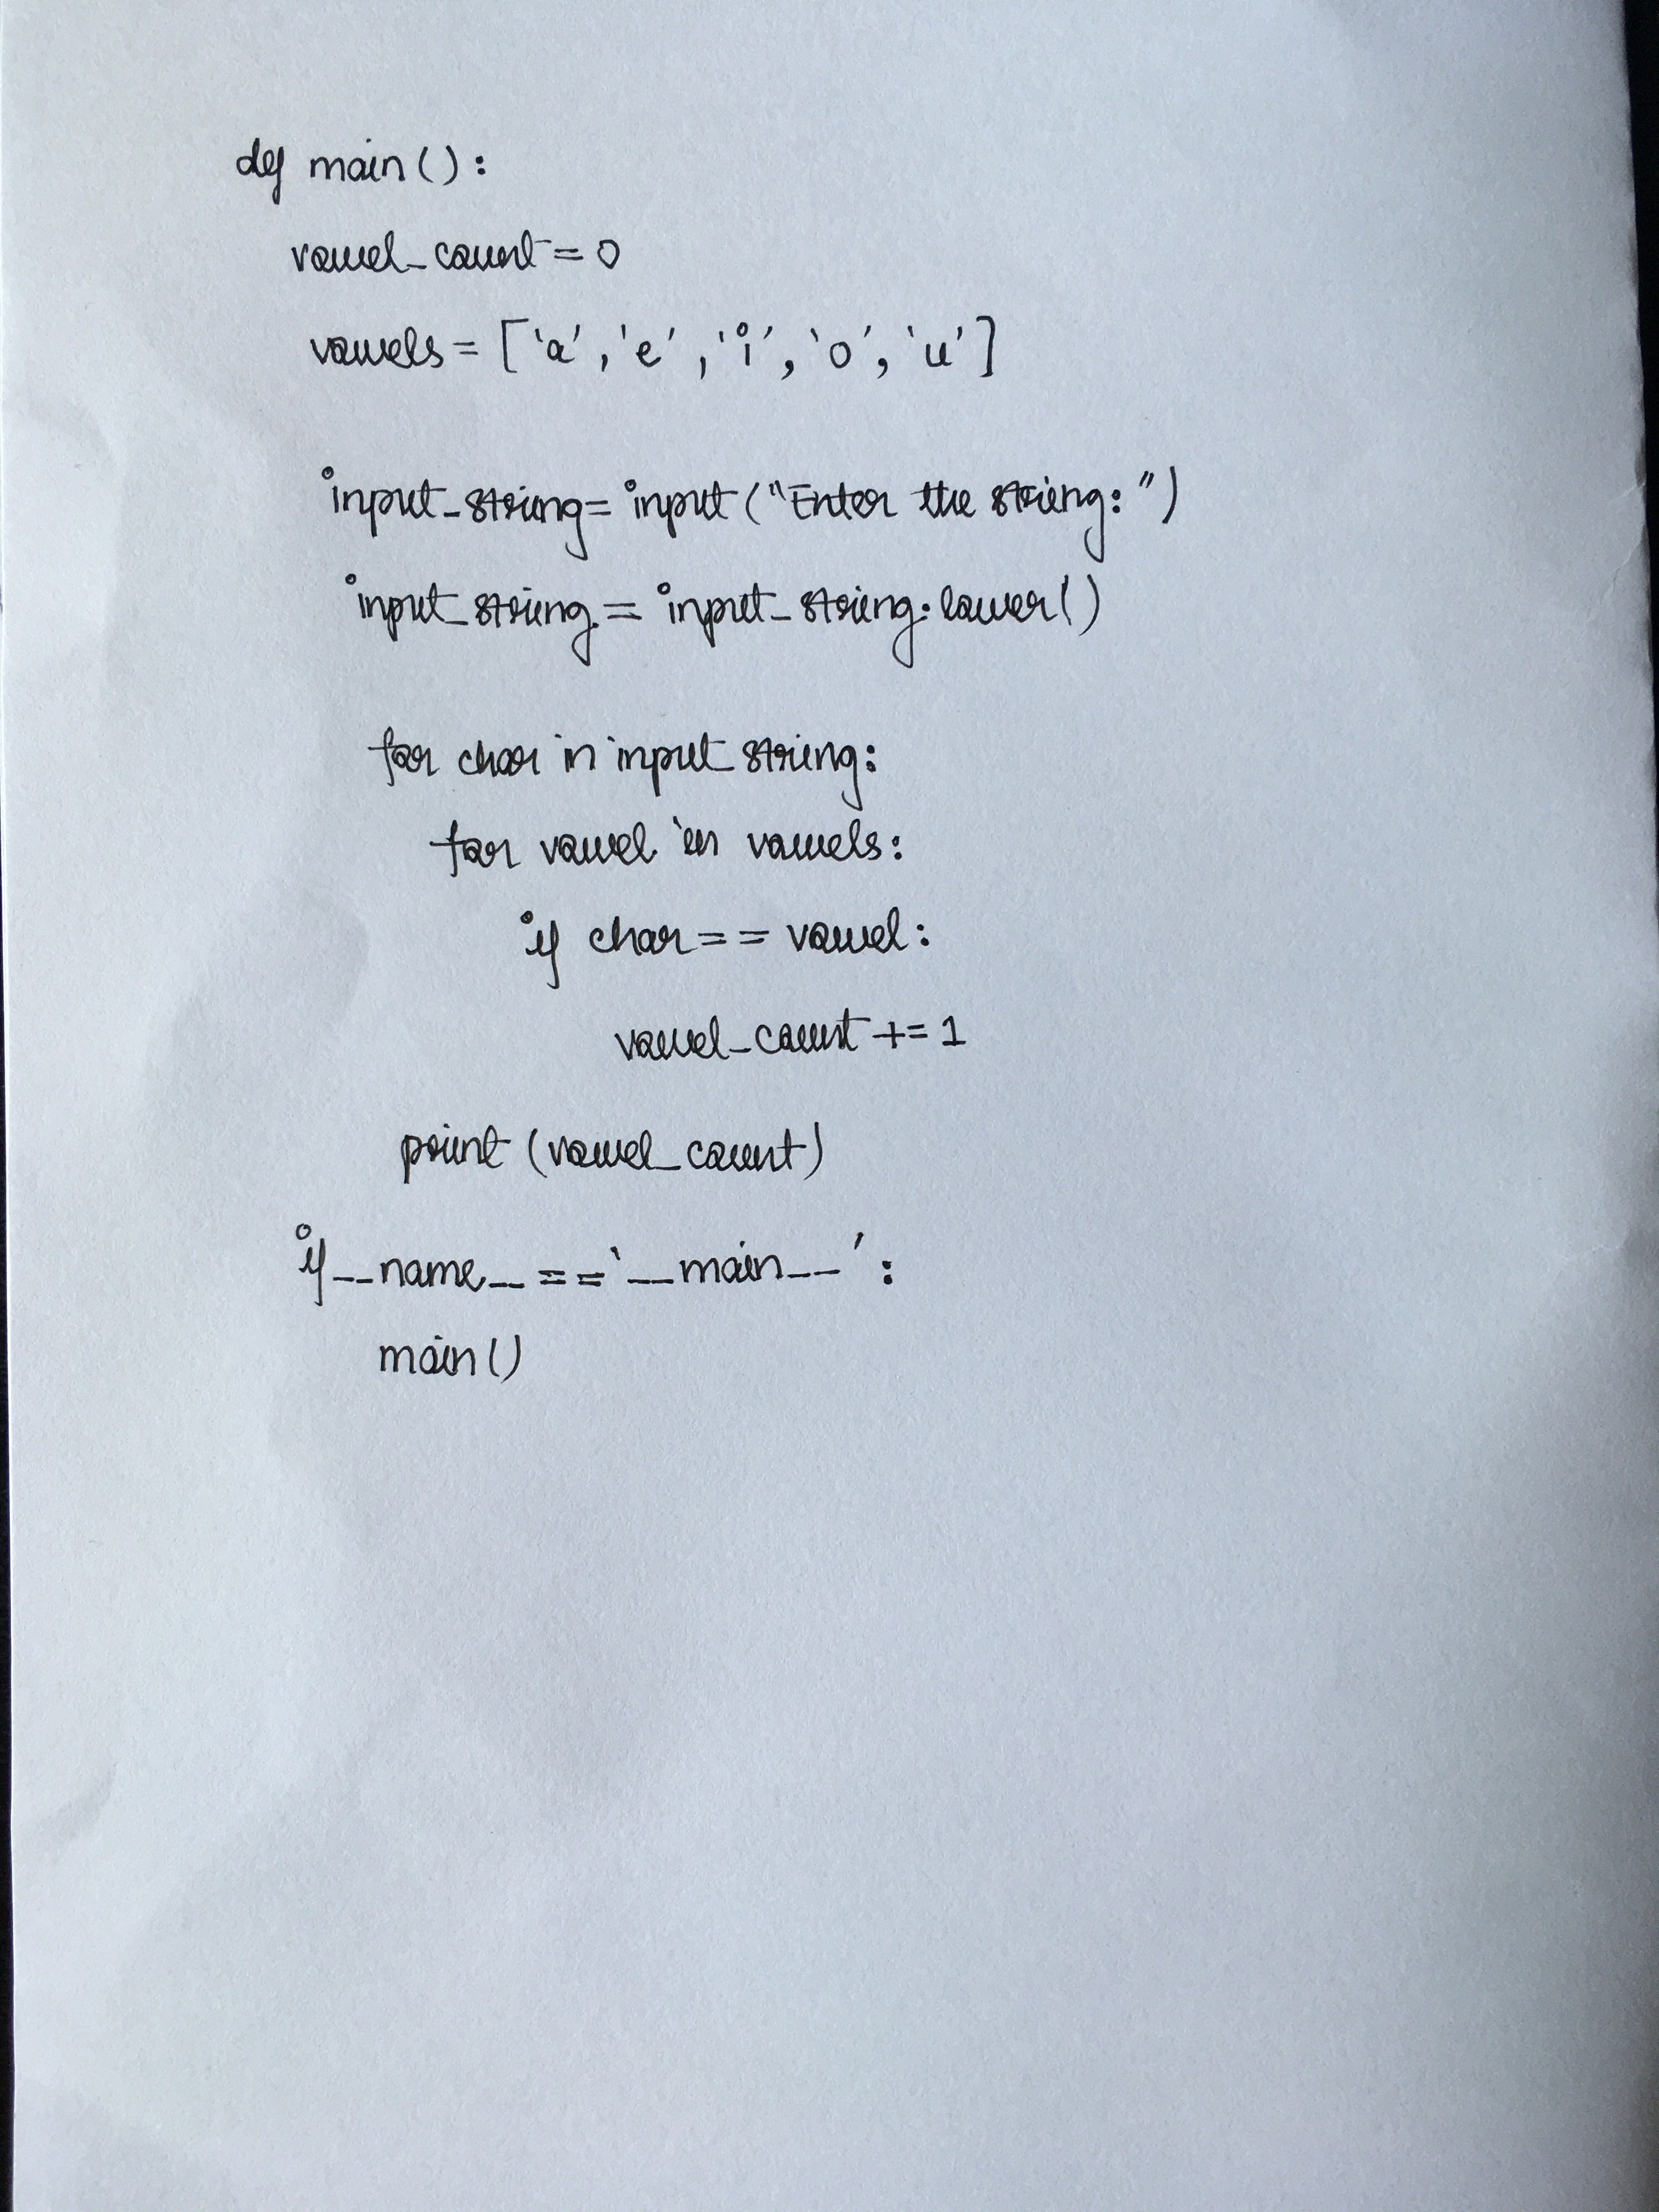 def main():
vowel_count = 0
vowels = ['a', 'e', 'i', 'o', 'u']
input_string = input("Enter the string: ")
input_string = input_string.lower()
for char in input_string:
for vowel in vowels:
if char == vowel:
vowel_count += 1
print(vowel_count)
if __name__ == '__main__':
main()